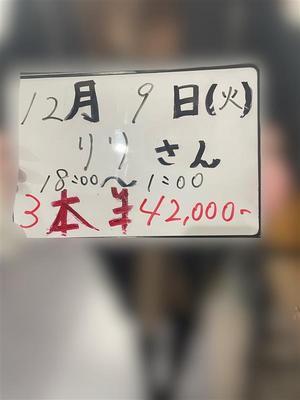 12月 9日(火)
りりさん
18:00〜1:00
3本 ¥42,000-